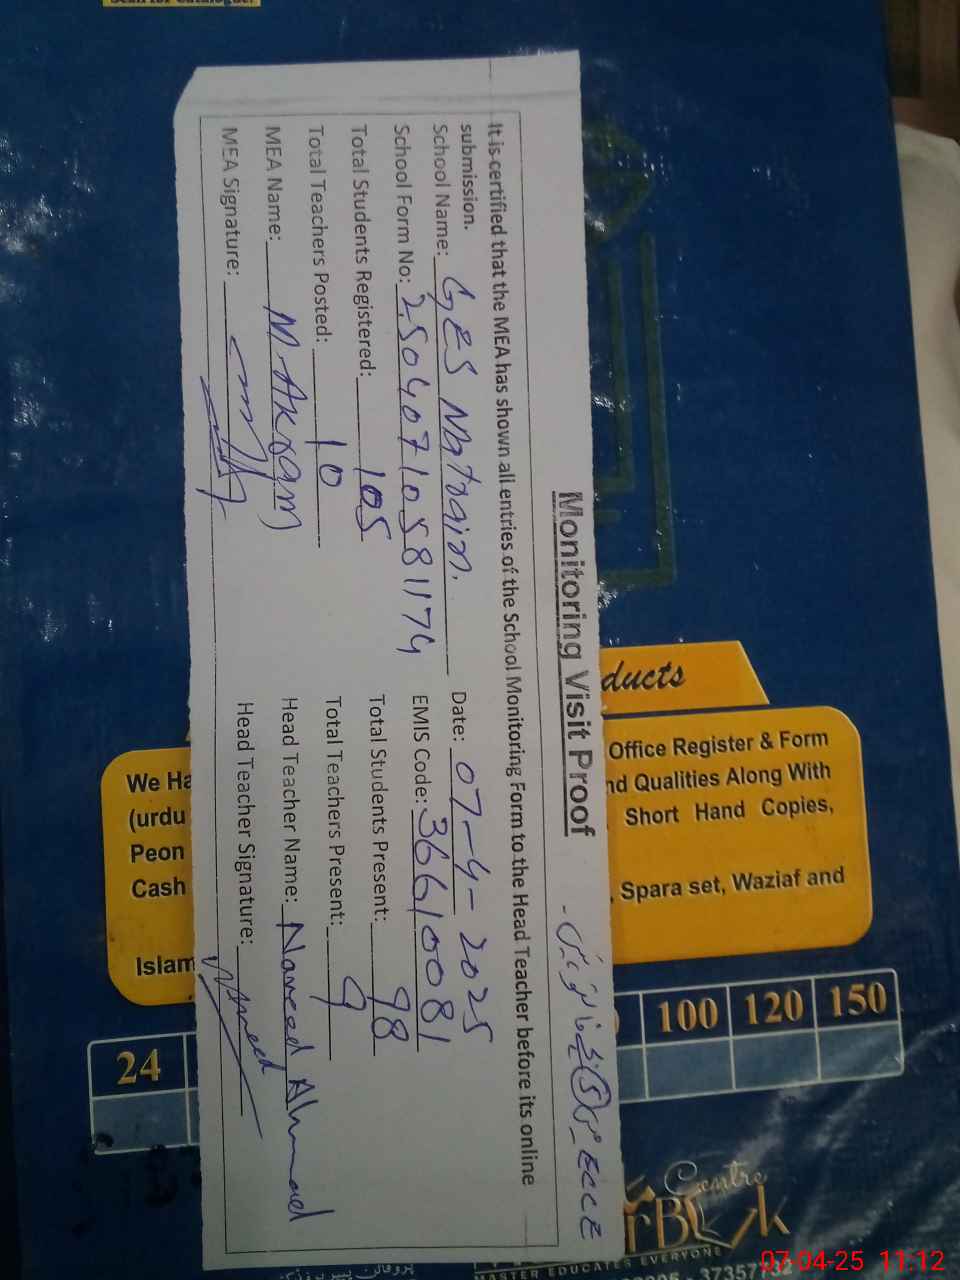 Monitoring Visit Proof
ECCE
It is certified that the MEA has shown all entries of the School Monitoring Form to the Head Teacher before its online
submission.
School Name: GES Natrain. Date: 07-4-2025
School Form No: 25040710581174 EMIS Code: 36610081
Total Students Registered: 105 Total Students Present: 98
Total Teachers Posted: 10 Total Teachers Present: 9
MEA Name: M. Akram Head Teacher Name: Naveed Ahmad
MEA Signature: Head Teacher Signature: Naveed
ducts
Office Register & Form
nd Qualities Along With
Short Hand Copies,
Spara set, Waziaf and
We Ha
(urdu
Peon
Cash
Islam
100 120 150
24
Centre
MASTER EDUCATES EVERYONE
07-04-25 11:12